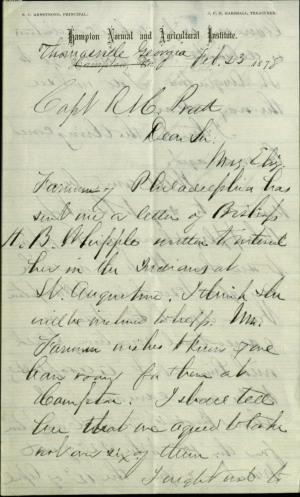 S. C. ARMSTRONG, PRINCIPAL. J. F. B. MARSHALL, TREASURER.
Hampton Normal and Agricultural Institute.
Thomasville Georgia
Hampton, Va. Feb. 23 1878
Capt R H Pratt
Dear Sir.
Mrs Eliz
Farnum of Philadelphia has
sent me a letter of Bishop
H. B. Whipple written to interest
her in the Indians at
St. Augustine. I think she
will be inclined to help. Mrs.
Farnum wishes to know if we
have room for them at
Hampton. I shall tell
her that we agreed to take
not over six of them.
I might not to